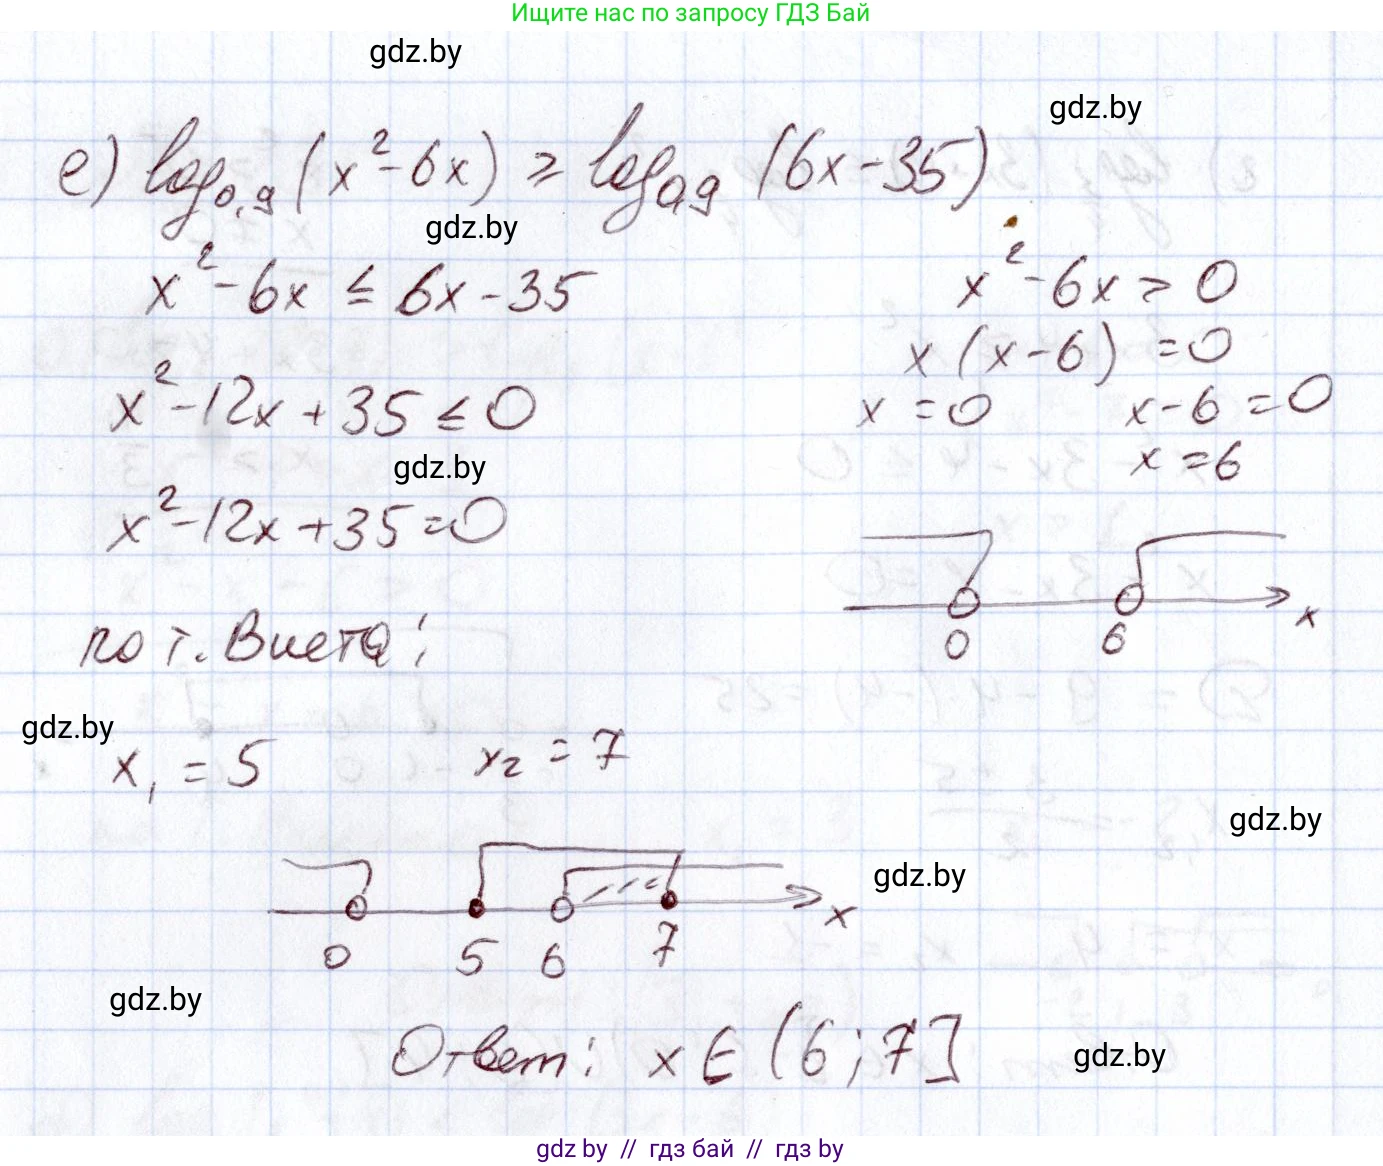 Ищите нас по запросу ГДЗ Бай
gdz.by
gdz.by
е) log₀,₉ (x² - 6x) ≥ log₀,₉ (6x - 35)
gdz.by
x² - 6x ≤ 6x - 35
x² - 12x + 35 ≤ 0
gdz.by
x² - 12x + 35 = 0
по т. Виета:
gdz.by
x₁ = 5 x₂ = 7
x² - 6x > 0
x (x - 6) = 0
x = 0 x - 6 = 0
x = 6
0 6 x
gdz.by
gdz.by
0 5 6 7 x
gdz.by
Ответ: x ∈ (6; 7]
gdz.by
gdz by // гдз бай // гдз by